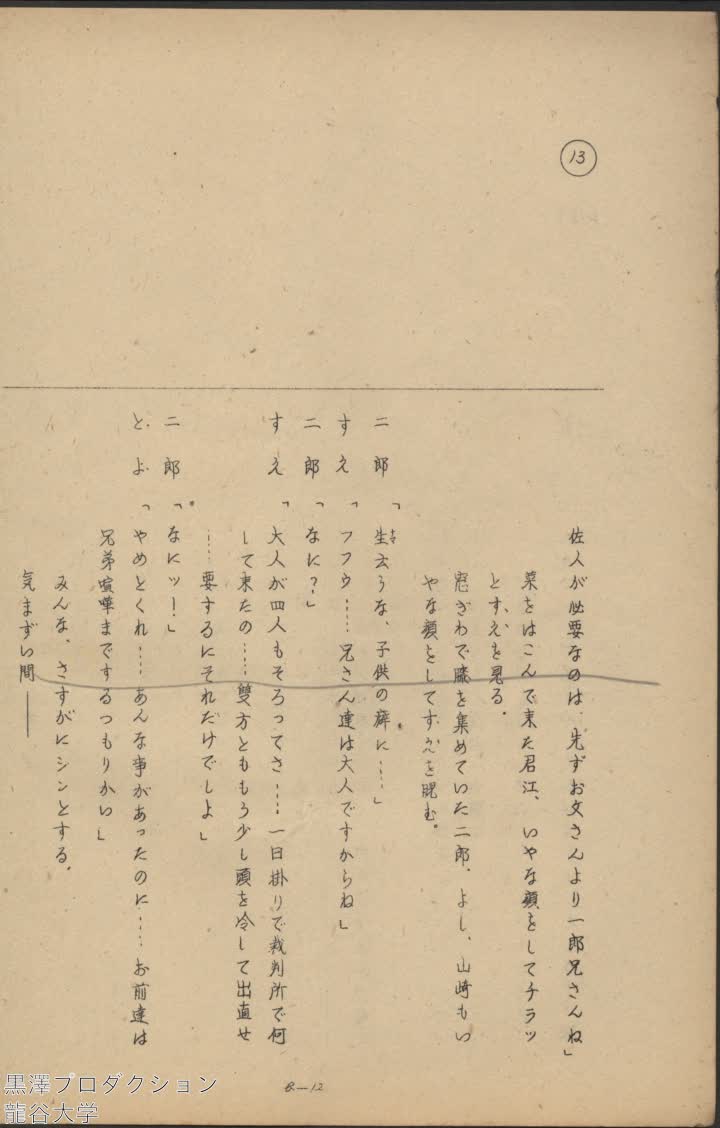 13
佐人が必要なのは、先ずお父さんより一郎兄さんね」
菜をはこんで来た君江、いやな顔をしてチラッ
とすえを見る.
窓ぎわで膝を集めていた二郎、よし、山崎もい
やな顔をしてすえを睨む。
二郎「生云うな、子供の癖に……」
ナマ
すえ「フフウ……兄さん達は大人ですからね」
二郎「なに?」
すえ「大人が四人もそろってさ……一日掛りで裁判所で何
して来たの……雙方とももう少し頭を冷して出直せ
……要するにそれだけでしよ」
二郎「なにッ!」
とよ「やめとくれ……あんな事があったのに……お前達は
兄弟喧嘩までするつもりかい」
みんな、さすがにシンとする.
気まずい間――
B—12
黒澤プロダクション
龍谷大学